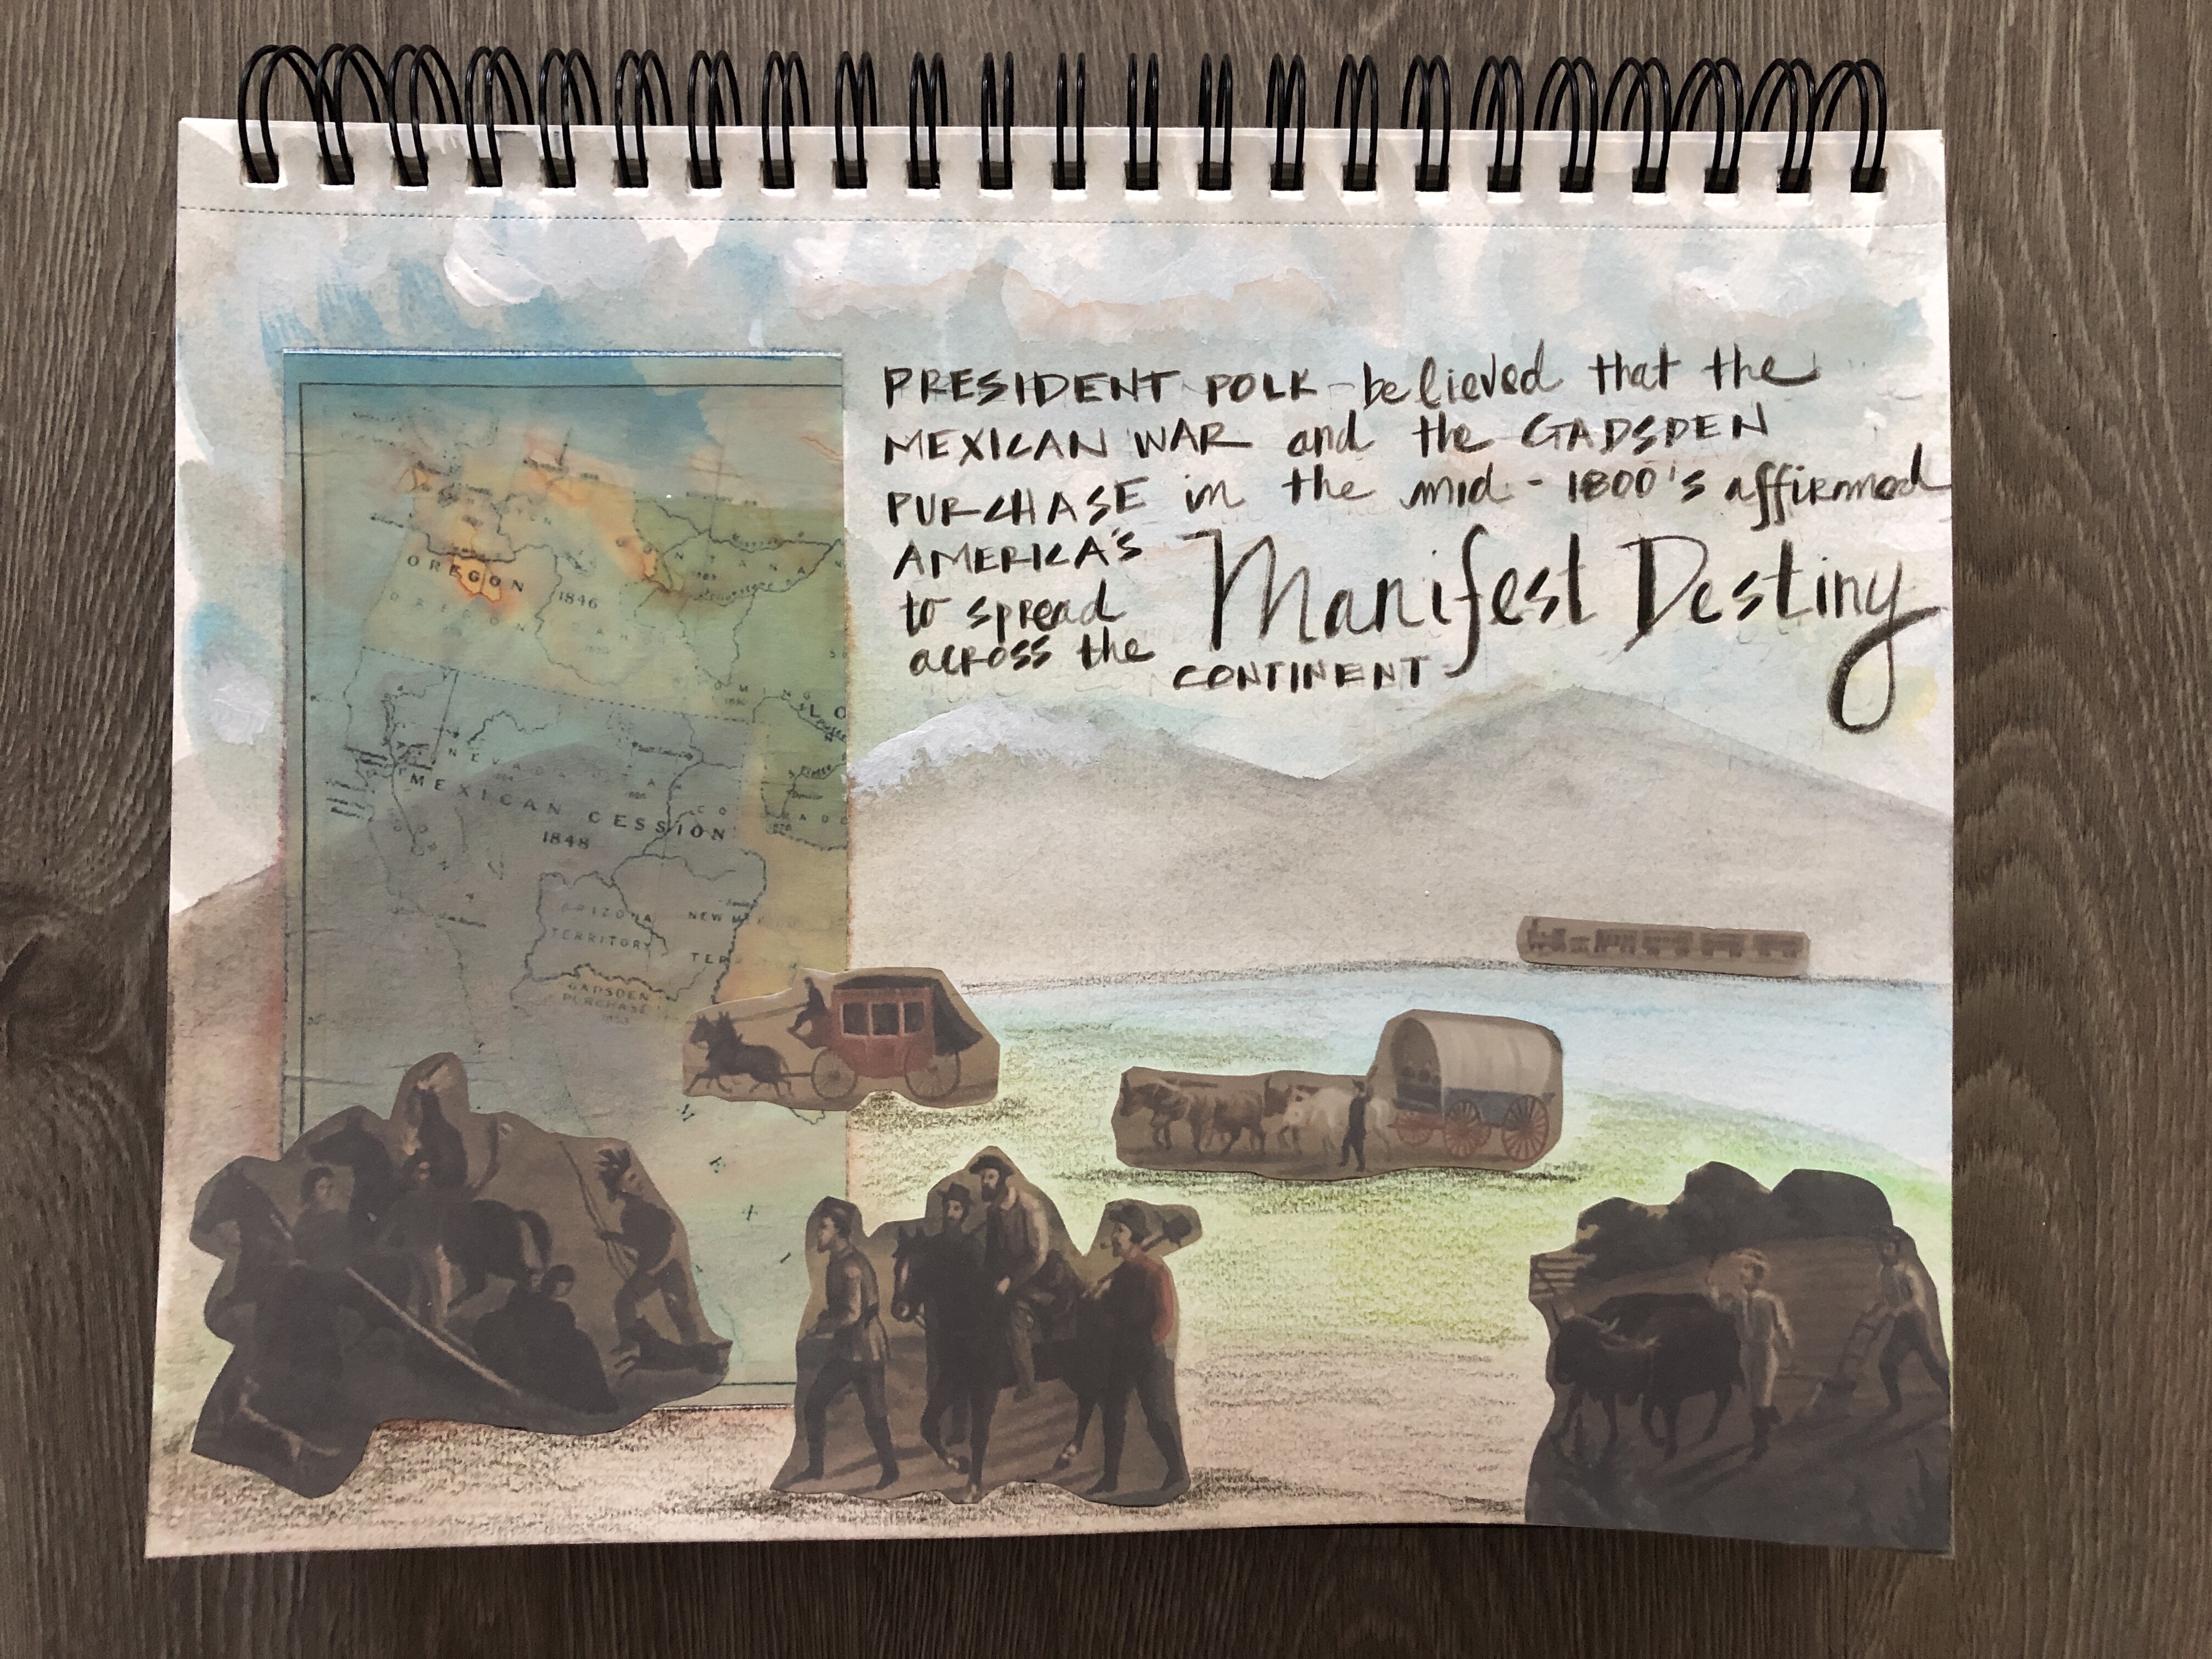 PRESIDENT POLK believed that the
MEXICAN WAR and the GADSDEN
PURCHASE in the mid-1800's affirmed
AMERICA'S Manifest Destiny
to spread
across the
CONTINENT
OREGON
1846
OREGON
MONTANA
NEVADA
UTAH
MEXICAN CESSION
1848
ARIZONA
TERRITORY
NEW MEX
TER
GADSDEN
PURCHASE